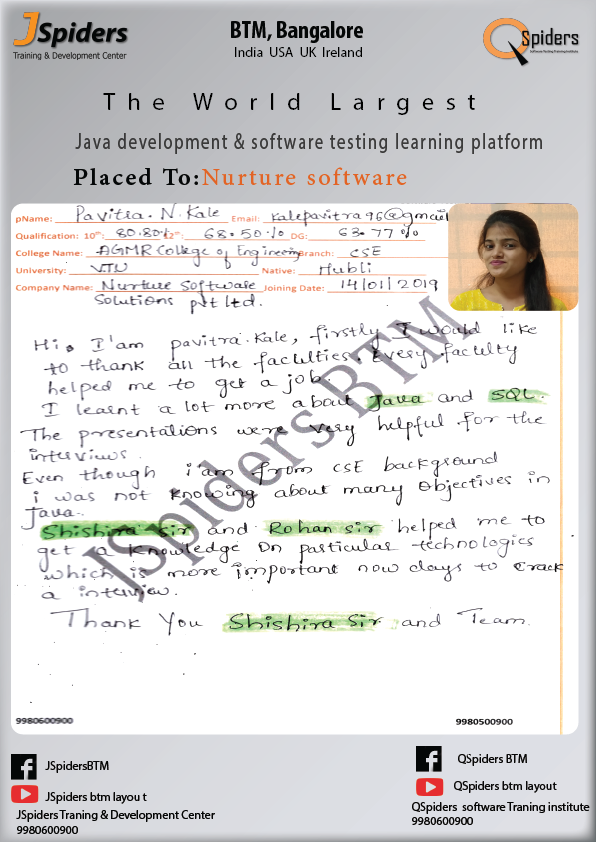 JSpiders
Training & Development Center
BTM, Bangalore
India USA UK Ireland
QSpiders
Software Testing Training Institute
The World Largest
Java development & software testing learning platform
Placed To:Nurture software
pName: Pavitra. N. Kale Email: kalepavitra96@gmail
Qualification: 10th: 80.80% 12th: 68.50% DG: 63.77%
College Name: AGMR College of Engineering Branch: CSE
University: VTU Native: Hubli
Company Name: Nurture Software Joining Date: 14/01/2019
Solutions pvt ltd.
Hi, I'am pavitra.kale, firstly I would like
to thank all the faculties. Every faculty
helped me to get a job.
I learnt a lot more about Java and SQL.
The presentations were very helpful for the
interviews.
Even though i'am from CSE background
i was not knowing about many objectives in
Java.
Shishira sir and Rohan sir helped me to
get a knowledge on particular technologies
which is more important now days to crack
a interview.
Thank You Shishira Sir and Team.
JSpiders BTM
9980600900 9980500900
JSpidersBTM
JSpiders btm layou t
JSpiders Traning & Development Center
9980600900
QSpiders BTM
QSpiders btm layout
QSpiders software Traning institute
9980600900